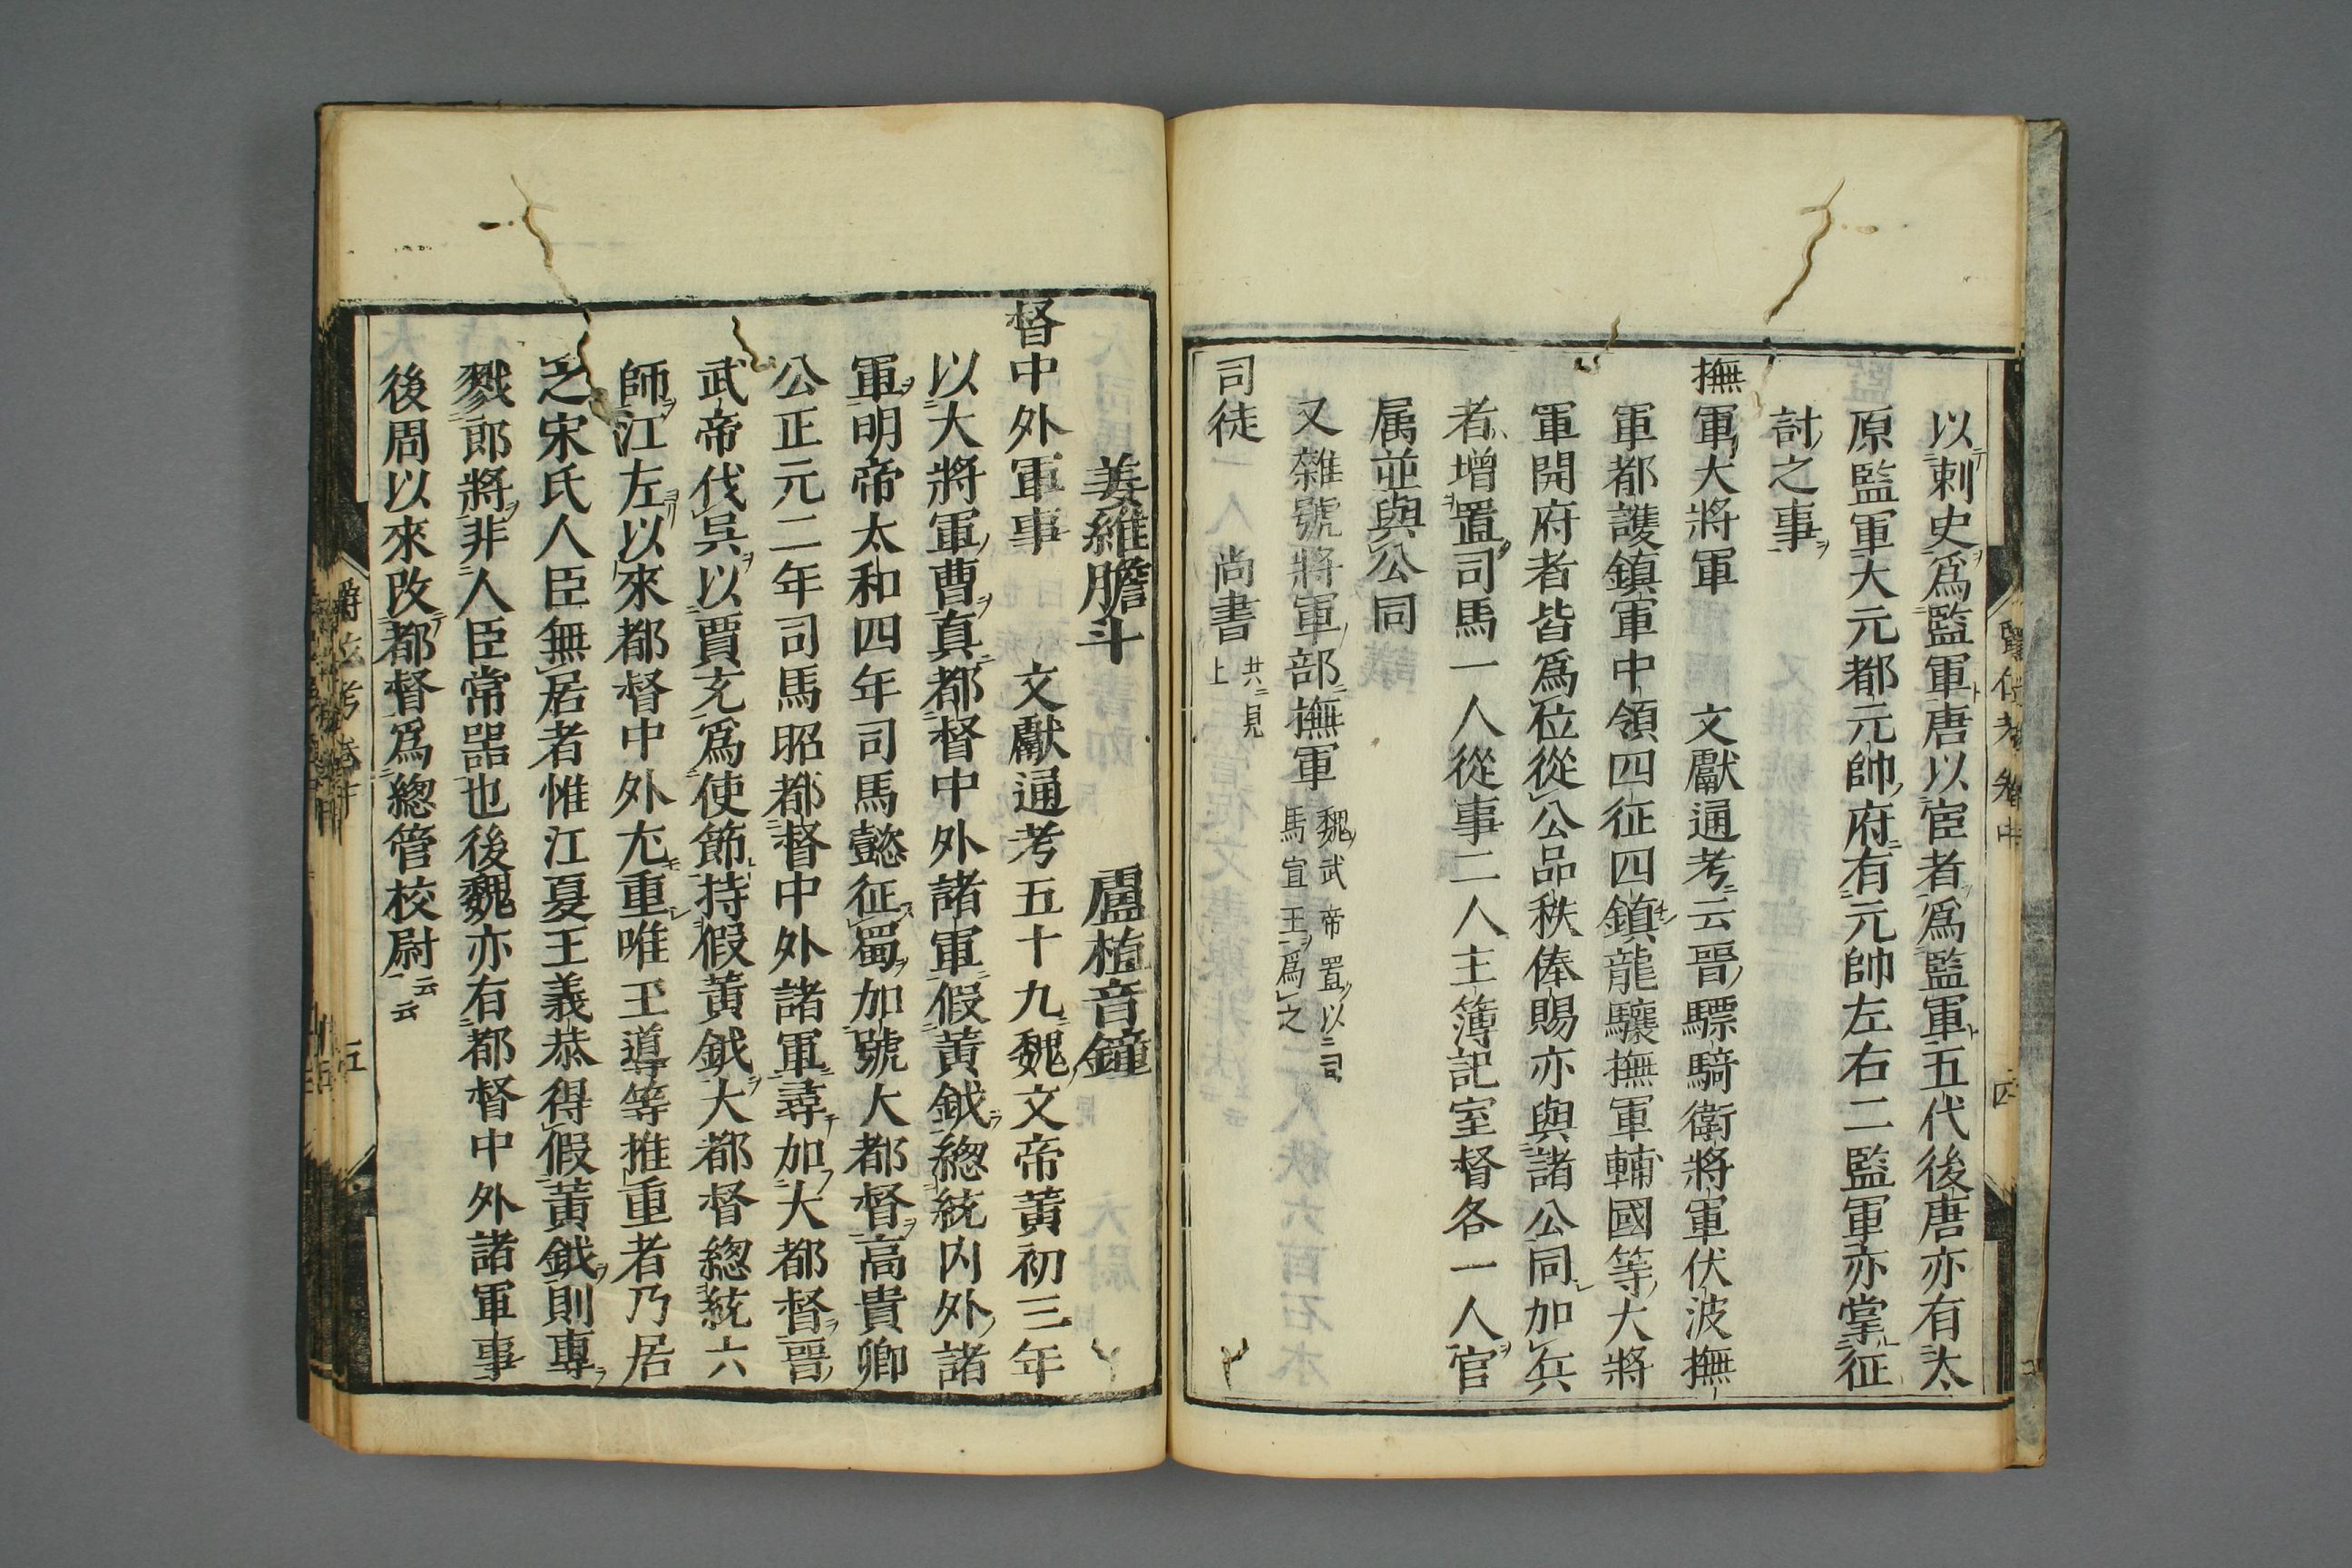 以刺史爲監軍唐以宦者爲監軍五代後唐亦有太
原監軍大元都元帥府有元帥左右二監軍亦掌征
討之事
撫軍大將軍　文獻通考云晉驃騎衛將軍伏波撫
軍都護鎮軍中領四征四鎮龍驤撫軍輔國等大將
軍開府者皆爲位從公品秩俸賜亦與諸公同加兵
者增置司馬一人從事二人主簿記室督各一人官
属並與公同
又雜號將軍部撫軍 魏武帝置以司
馬宣王爲之
司徒　尚書 共見
上
姜維膽斗　盧植音鐘
督中外軍事　文獻通考五十九魏文帝黃初三年
以大將軍曹真都督中外諸軍假黃鉞總統內外諸
軍明帝太和四年司馬懿征蜀加號大都督高貴卿
公正元二年司馬昭都督中外諸軍尋加大都督晉
武帝伐吳以賈充爲使節持假黃鉞大都督總統六
師江左以來都督中外尤重唯王導等推重者乃居
之宋氏人臣無居者惟江夏王義恭得假黃鉞則專
戮郎將非人臣常器也後魏亦有都督中外諸軍事
後周以來改都督爲總管校尉 云
云
五